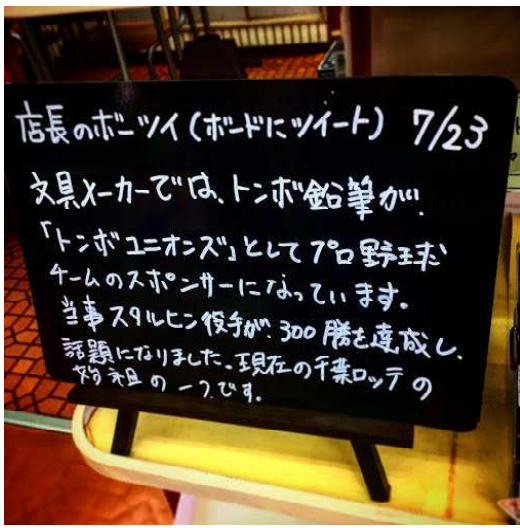 店長のボーツイ(ボードにツイート) 7/23
文具メーカーでは、トンボ鉛筆が、
「トンボユニオンズ」としてプロ野球
チームのスポンサーになっています。
当事スタルヒン投手が、300勝を達成し、
話題になりました。現在の千葉ロッテの
始祖の一つです。